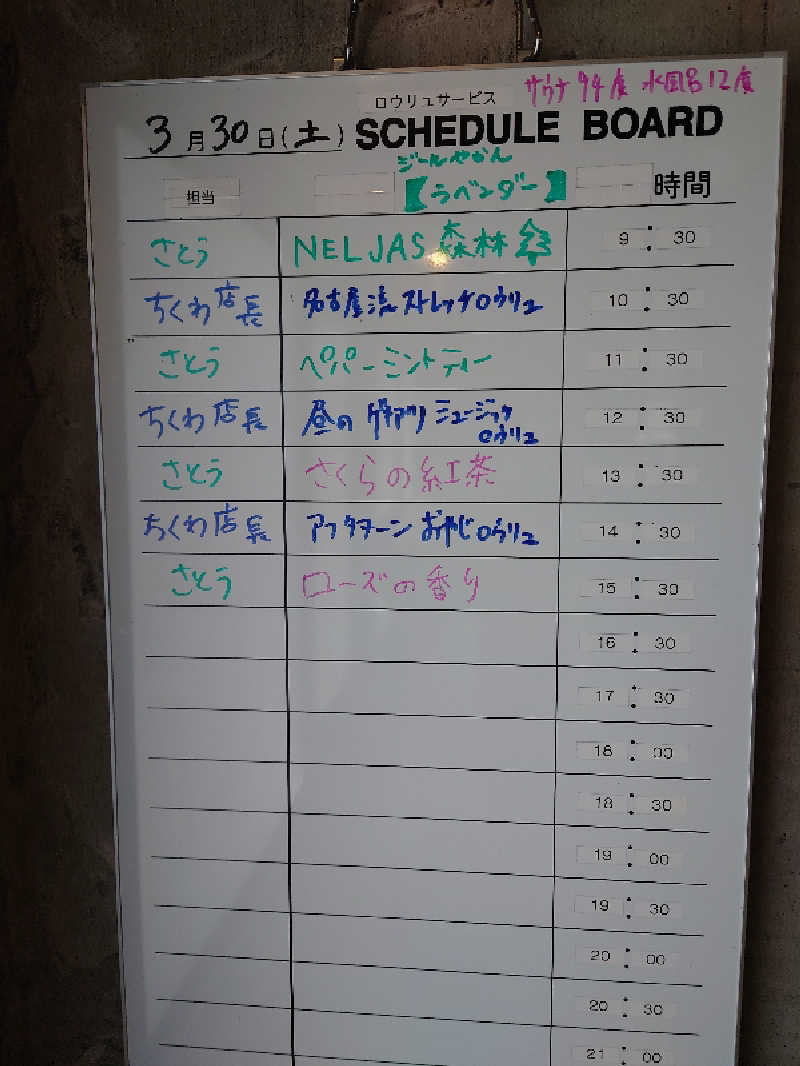 サウナ 94度 水風呂12度
ロウリュサービス
3月30日(土) SCHEDULE BOARD
ジールやかん
担当 【ラベンダー】 時間
さとう NELJAS 森林 9:30
ちくわ店長 名古屋流ストレッチロウリュ 10:30
さとう ペパーミントティー 11:30
ちくわ店長 昼の ゲキアツ ミュージック
ロウリュ 12:30
さとう さくらの紅茶 13:30
ちくわ店長 アフタヌーン おやじロウリュ 14:30
さとう ローズの香り 15:30
16:30
17:30
18:00
18:30
19:00
19:30
20:00
20:30
21:00